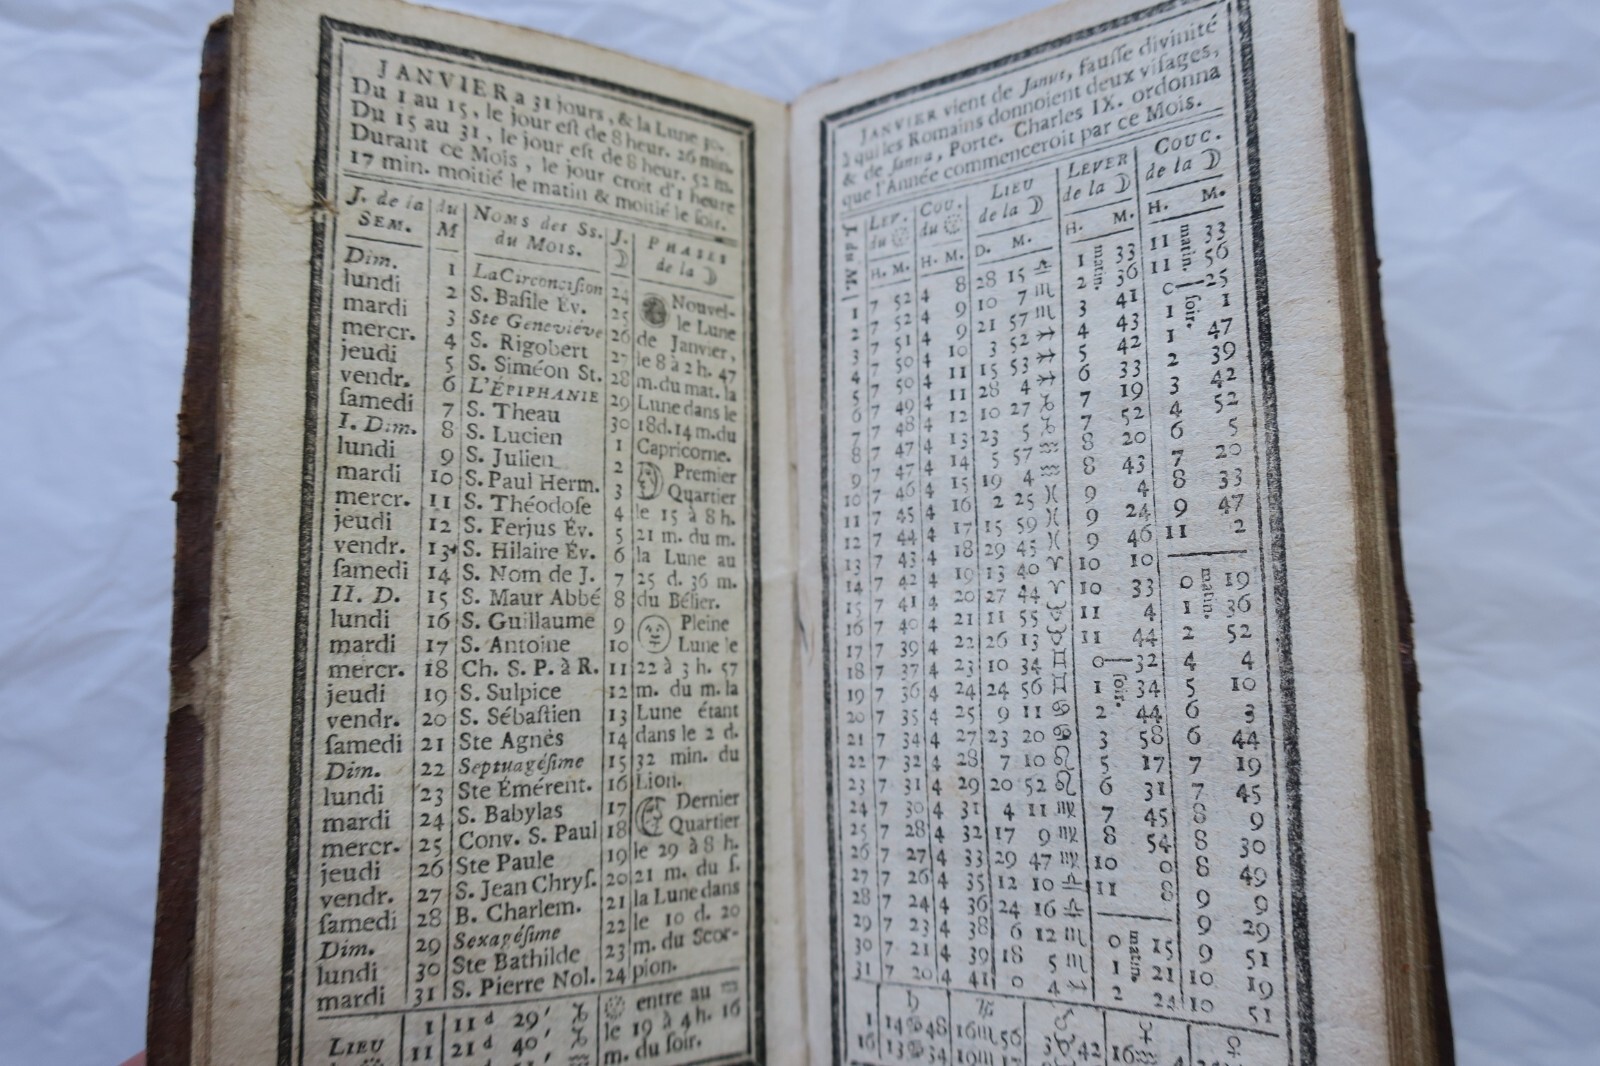 JANVIER a 31 jours, & la Lune 30.
Du 1 au 15, le jour eſt de 8 heur. 26 min.
Du 15 au 31, le jour eſt de 8 heur. 52 m.
Durant ce Mois, le jour croit d'1 heure
17 min. moitié le matin & moitié le ſoir.
J. de la SEM. du M Noms des Ss. du Mois. J. ☽ PHASES de la ☽
Dim. 1 La Circonciſion 24 Nouvel-
lundi 2 S. Baſile Év. 25 le Lune
mardi 3 Ste Geneviéve 26 de Janvier,
mercr. 4 S. Rigobert 27 le 8 à 2 h. 47
jeudi 5 S. Siméon St. 28 m. du mat. la
vendr. 6 L'ÉPIPHANIE 29 Lune dans le
ſamedi 7 S. Theau 30 18d. 14 m. du
I. Dim. 8 S. Lucien 1 Capricorne.
lundi 9 S. Julien 2 Premier
mardi 10 S. Paul Herm. 3 Quartier
mercr. 11 S. Théodoſe 4 le 15 à 8 h.
jeudi 12 S. Ferjus Év. 5 21 m. du m.
vendr. 13 S. Hilaire Év. 6 la Lune au
ſamedi 14 S. Nom de J. 7 25 d. 36 m.
II. D. 15 S. Maur Abbé 8 du Bélier.
lundi 16 S. Guillaume 9 Pleine
mardi 17 S. Antoine 10 Lune le
mercr. 18 Ch. S. P. à R. 11 22 à 3 h. 57
jeudi 19 S. Sulpice 12 m. du m. la
vendr. 20 S. Sébaſtien 13 Lune étant
ſamedi 21 Ste Agnès 14 dans le 2 d.
Dim. 22 Septuagéſime 15 32 min. du
lundi 23 Ste Émérent. 16 Lion.
mardi 24 S. Babylas 17 Dernier
mercr. 25 Conv. S. Paul 18 Quartier
jeudi 26 Ste Paule 19 le 29 à 8 h.
vendr. 27 S. Jean Chryſ. 20 21 m. du ſ.
ſamedi 28 B. Charlem. 21 la Lune dans
Dim. 29 Sexagéſime 22 le 10 d. 20
lundi 30 Ste Bathilde 23 m. du Scor-
mardi 31 S. Pierre Nol. 24 pion.
LIEU 1 11 d 29′ ♑ entre au ♒
11 21 d 40′ ♑ le 19 à 4 h. 16
m. du ſoir.
JANVIER vient de Janus, fauſſe divinité
à qui les Romains donnoient deux viſages,
& de Janua, Porte. Charles IX. ordonna
que l'Année commenceroit par ce Mois.
J. du M. LEV. du COU. du LIEU de la ☽ LEVER de la ☽ COUC. de la ☽
H. M. H. M. D. M. H. M. H. M.
1 7 52 4 8 28 15 ♎ 1 matin. 33 11 matin. 33
2 7 52 4 9 10 7 ♏ 2 36 11 56
3 7 51 4 9 21 57 ♏ 3 41 0 25
4 7 50 4 10 3 52 ♐ 4 43 1 ſoir. 1
5 7 50 4 11 15 53 ♐ 5 42 1 47
6 7 49 4 11 28 4 ♐ 6 33 2 39
7 7 48 4 12 10 27 ♑ 7 19 3 42
8 7 47 4 13 23 5 ♑ 7 52 4 52
9 7 47 4 14 5 57 ♒ 8 20 6 5
10 7 46 4 15 19 4 ♒ 8 43 7 20
11 7 45 4 16 2 25 ♓ 9 4 8 33
12 7 44 4 17 15 59 ♓ 9 24 9 47
13 7 43 4 18 29 45 ♓ 9 46 11 2
14 7 42 4 19 13 40 ♈ 10 10
15 7 41 4 20 27 44 ♈ 10 33 0 matin. 19
16 7 40 4 21 11 55 ♉ 11 4 1 36
17 7 39 4 22 26 13 ♉ 11 44 2 52
18 7 37 4 23 10 34 ♊ 0 32 4 4
19 7 36 4 24 24 56 ♊ 1 ſoir. 34 5 10
20 7 35 4 25 9 11 ♋ 2 44 6 3
21 7 34 4 27 23 20 ♋ 3 58 6 44
22 7 32 4 28 7 10 ♌ 5 17 7 19
23 7 31 4 29 20 52 ♌ 6 31 7 45
24 7 30 4 31 4 11 ♍ 7 45 8 9
25 7 28 4 32 17 9 ♍ 8 54 8 30
26 7 27 4 33 29 47 ♍ 10 0 8 49
27 7 26 4 35 12 10 ♎ 11 8 9 9
28 7 24 4 36 24 16 ♎ 9 29
29 7 23 4 38 6 12 ♏ 0 matin. 15 9 51
30 7 21 4 39 18 5 ♏ 1 21 10 19
31 7 20 4 41 0 4 ♐ 2 24 10 51
♄ ♃ ♂ ♀ ☿
1 14 ♋ 48 16 ♏ 56 3 ♉ 42 16 ♒
16 13 ♋ 34